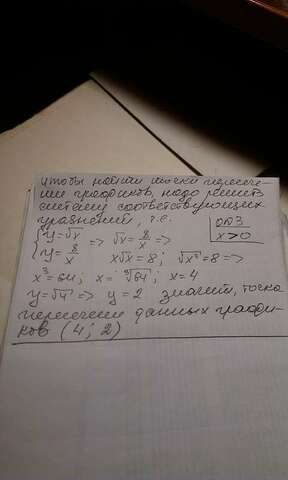 чтобы найти точки пересече-
ния графиков, надо решить
систему соответствующих
уравнений, т.е.
ОДЗ
x>0
{ y=√x
y= 8/x => √x = 8/x =>
x√x = 8; √x³ = 8 =>
x³=64; x= ³√64; x=4
y=√4 => y=2 значит, точка
пересечения данных графи-
ков (4; 2)